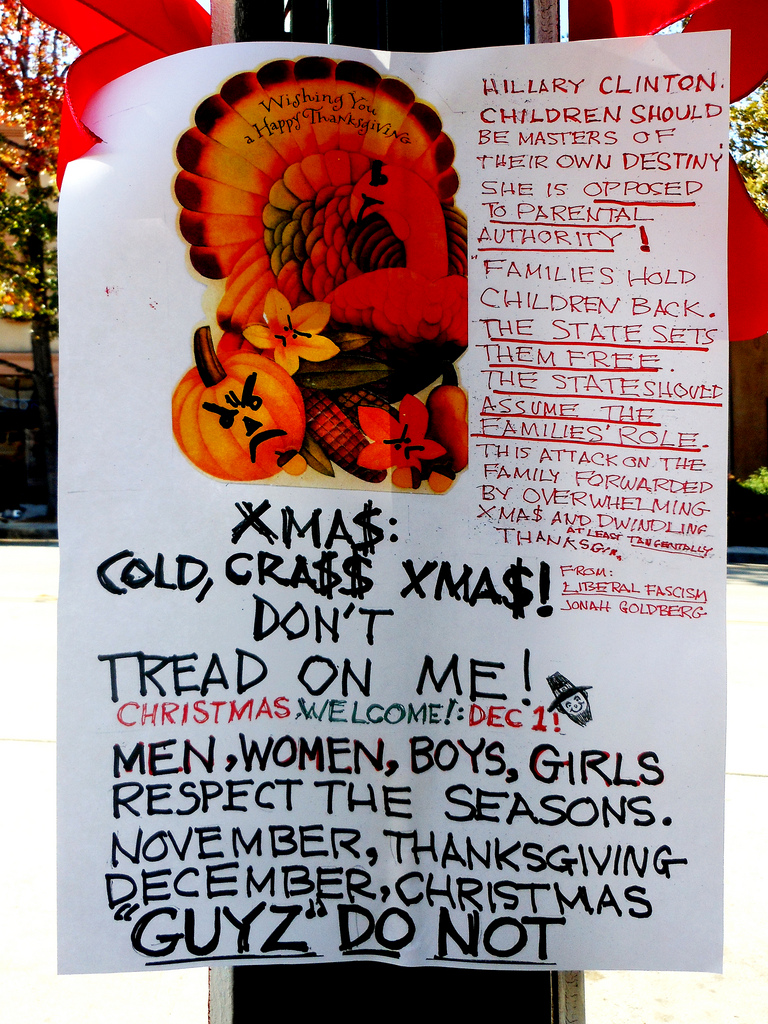 Wishing You
a Happy Thanksgiving
HILLARY CLINTON.
CHILDREN SHOULD
BE MASTERS OF
THEIR OWN DESTINY.
SHE IS OPPOSED
TO PARENTAL
AUTHORITY!
"FAMILIES HOLD
CHILDREN BACK.
THE STATE SETS
THEM FREE.
THE STATE SHOULD
ASSUME THE
FAMILIES' ROLE.
THIS ATTACK ON THE
FAMILY FORWARDED
BY OVERWHELMING
XMA$ AND DWINDLING
AT LEAST TANGENTIALLY
THANKSG.
FROM:
LIBERAL FASCISM
JONAH GOLDBERG
XMA$:
COLD, CRA$$ XMA$!
DON'T
TREAD ON ME!
CHRISTMAS, WELCOME!: DEC 1!
MEN, WOMEN, BOYS, GIRLS
RESPECT THE SEASONS.
NOVEMBER, THANKSGIVING
DECEMBER, CHRISTMAS
"GUYZ" DO NOT